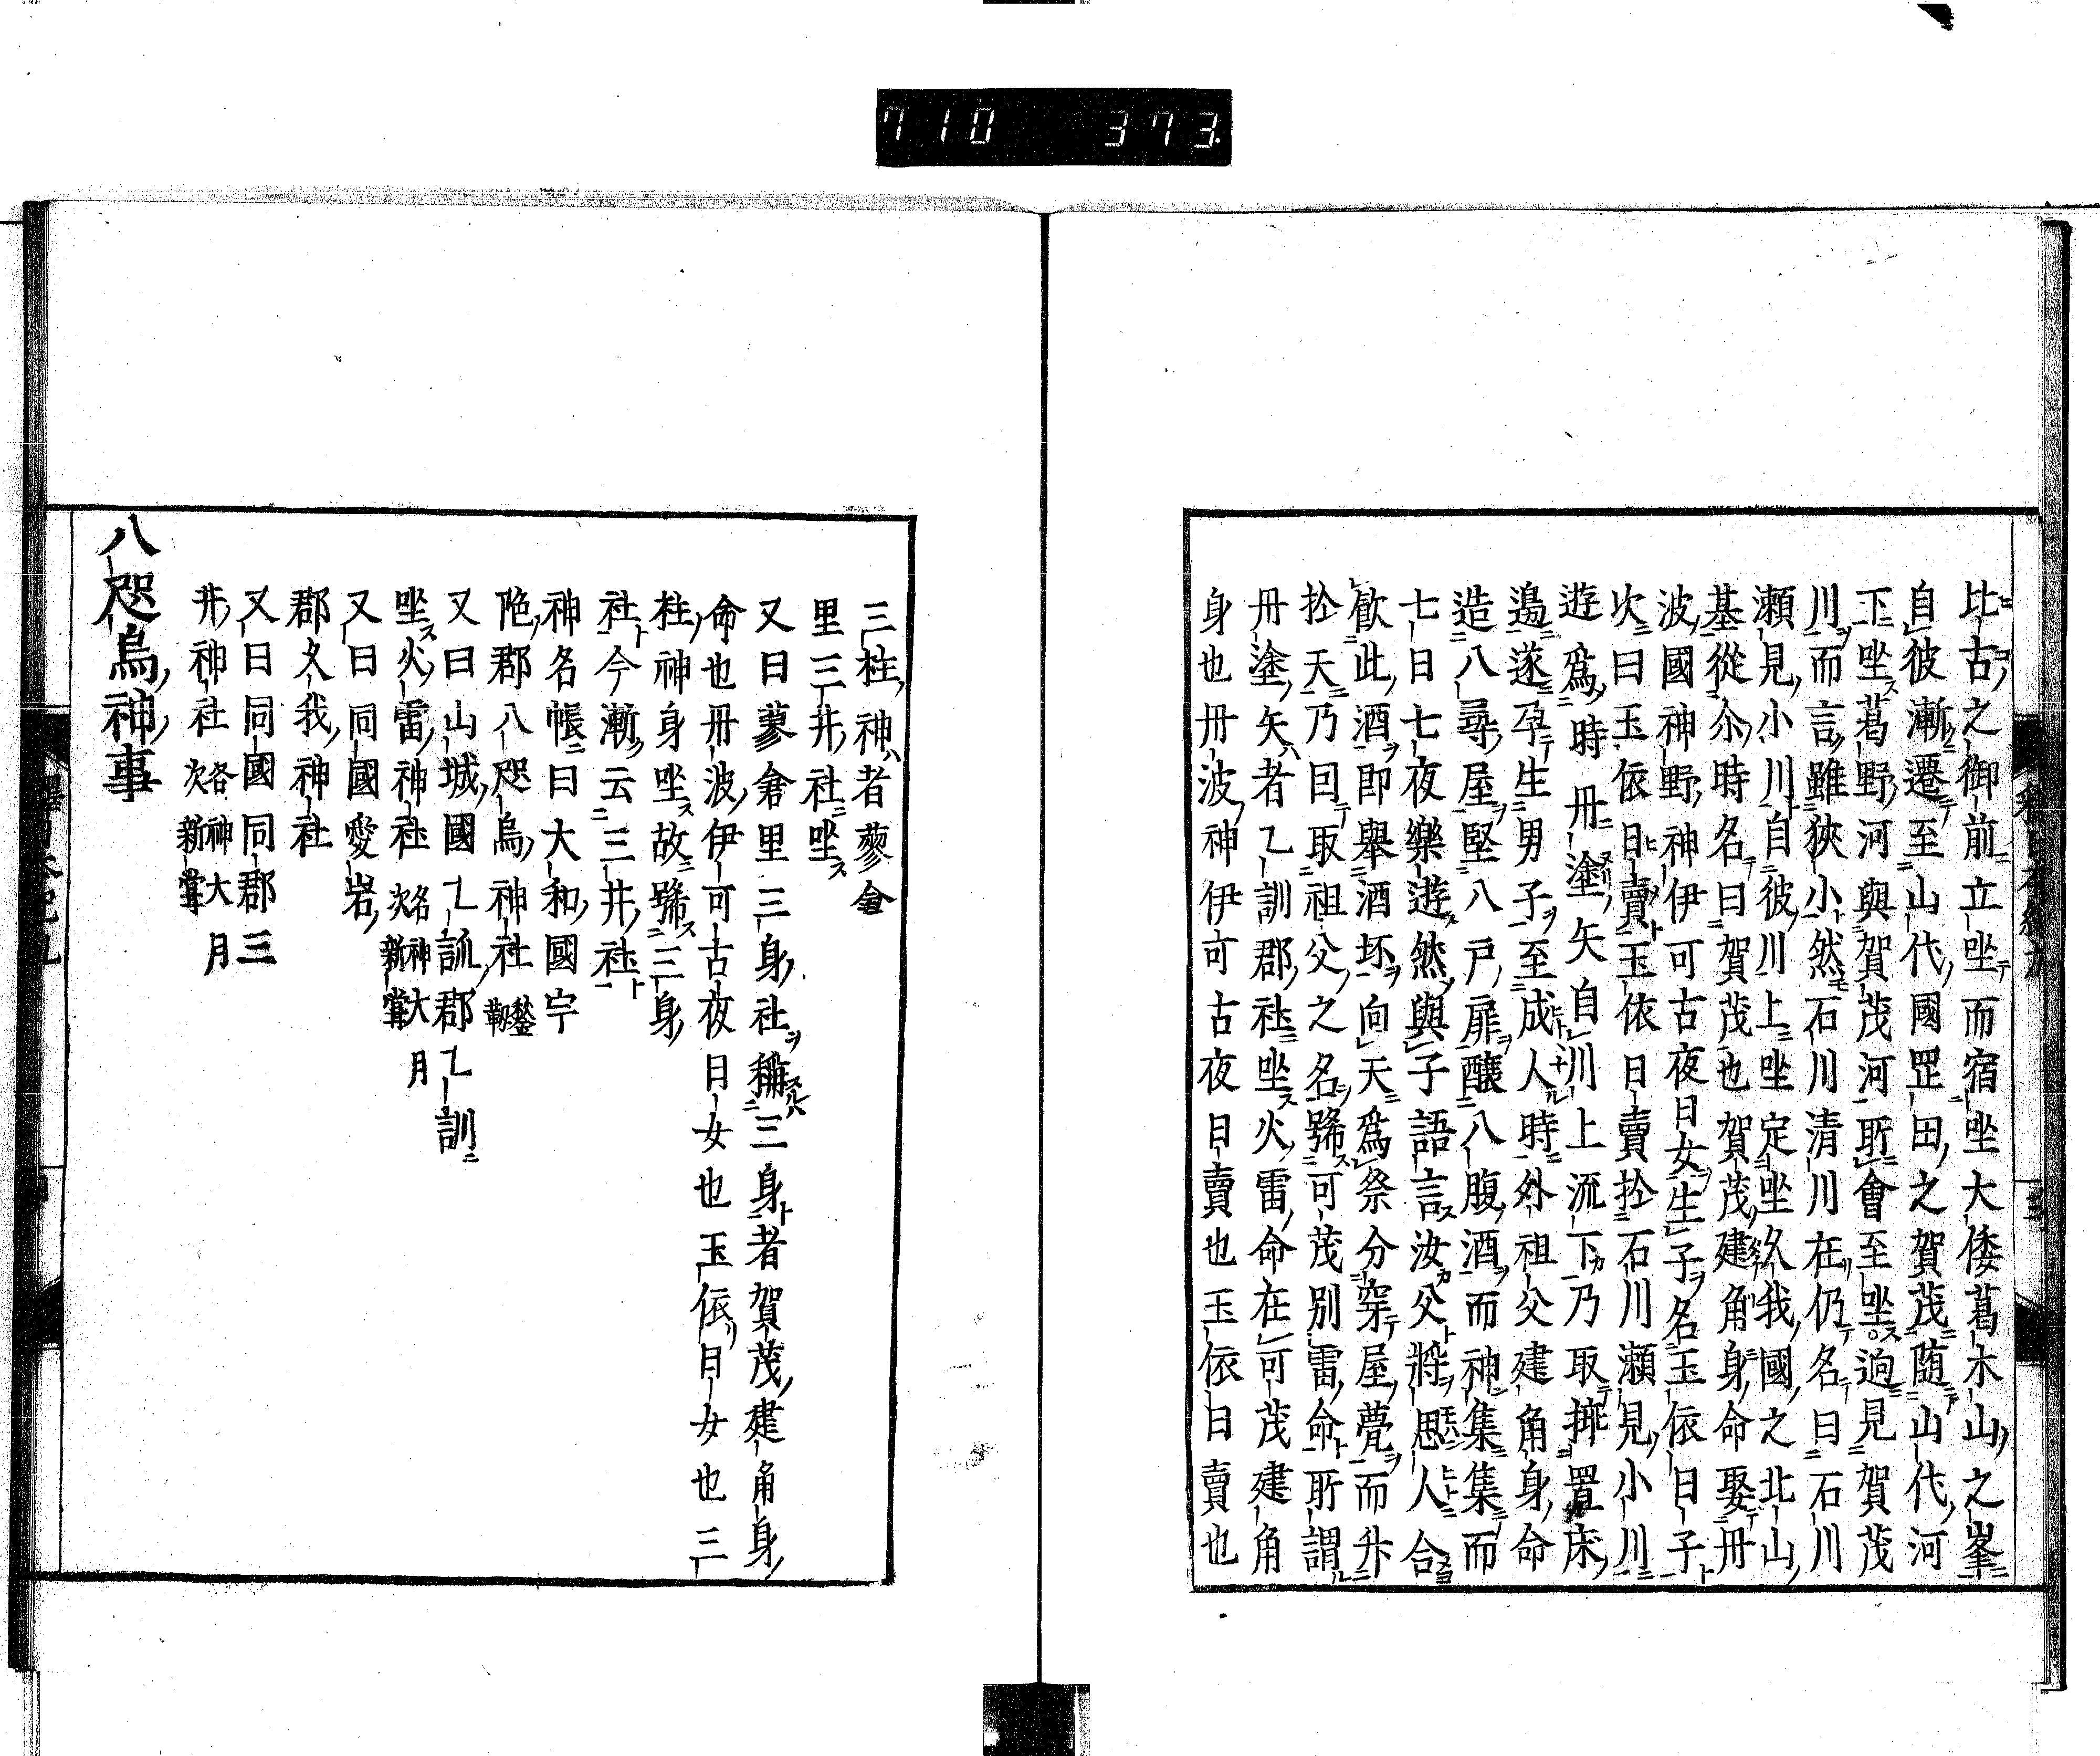 710 373
比古之御前立坐而宿坐大倭葛木山之峯
自彼漸遷至山代國罡田之賀茂随山代河
下坐葛野河與賀茂河所會至坐逈見賀茂
川而言雖狹小然石川清川在仍名曰石川
瀬見小川自彼川上坐定坐久我國之北山
基從尒時名曰賀茂也賀茂建角身命娶丹
波國神野神伊可古夜日女生子名玉依日子
次曰玉依日賣玉依日賣於石川瀬見小川
遊爲時丹塗矢自川上流下乃取挿置床
邉遂孕生男子至成人時外祖父建角身命
造八尋屋堅八戸扉釀八腹酒而神集集而
七日七夜樂遊然與子語言汝父將思人合
飮此酒即舉酒坏向天爲祭分穿屋甍而升
於天乃因取祖父之名號可茂別雷命所謂
丹塗矢者乙訓郡社坐火雷命在可茂建角
身也丹波神伊可古夜日賣也玉依日賣也
三柱神者蓼倉
里三井社坐
又曰蓼倉里三身社稱三身者賀茂建角身
命也丹波伊可古夜日女也玉依日女也三
柱神身坐故號三身
社今漸云三井社
神名帳曰大和國宇
陁郡八咫烏神社 鍬靫
又曰山城國乙訓郡乙訓
坐火雷神社 名神大月次新嘗
又曰同國愛宕
郡久我神社
又曰同國同郡三
井神社 名神大月次新嘗
八咫烏神事